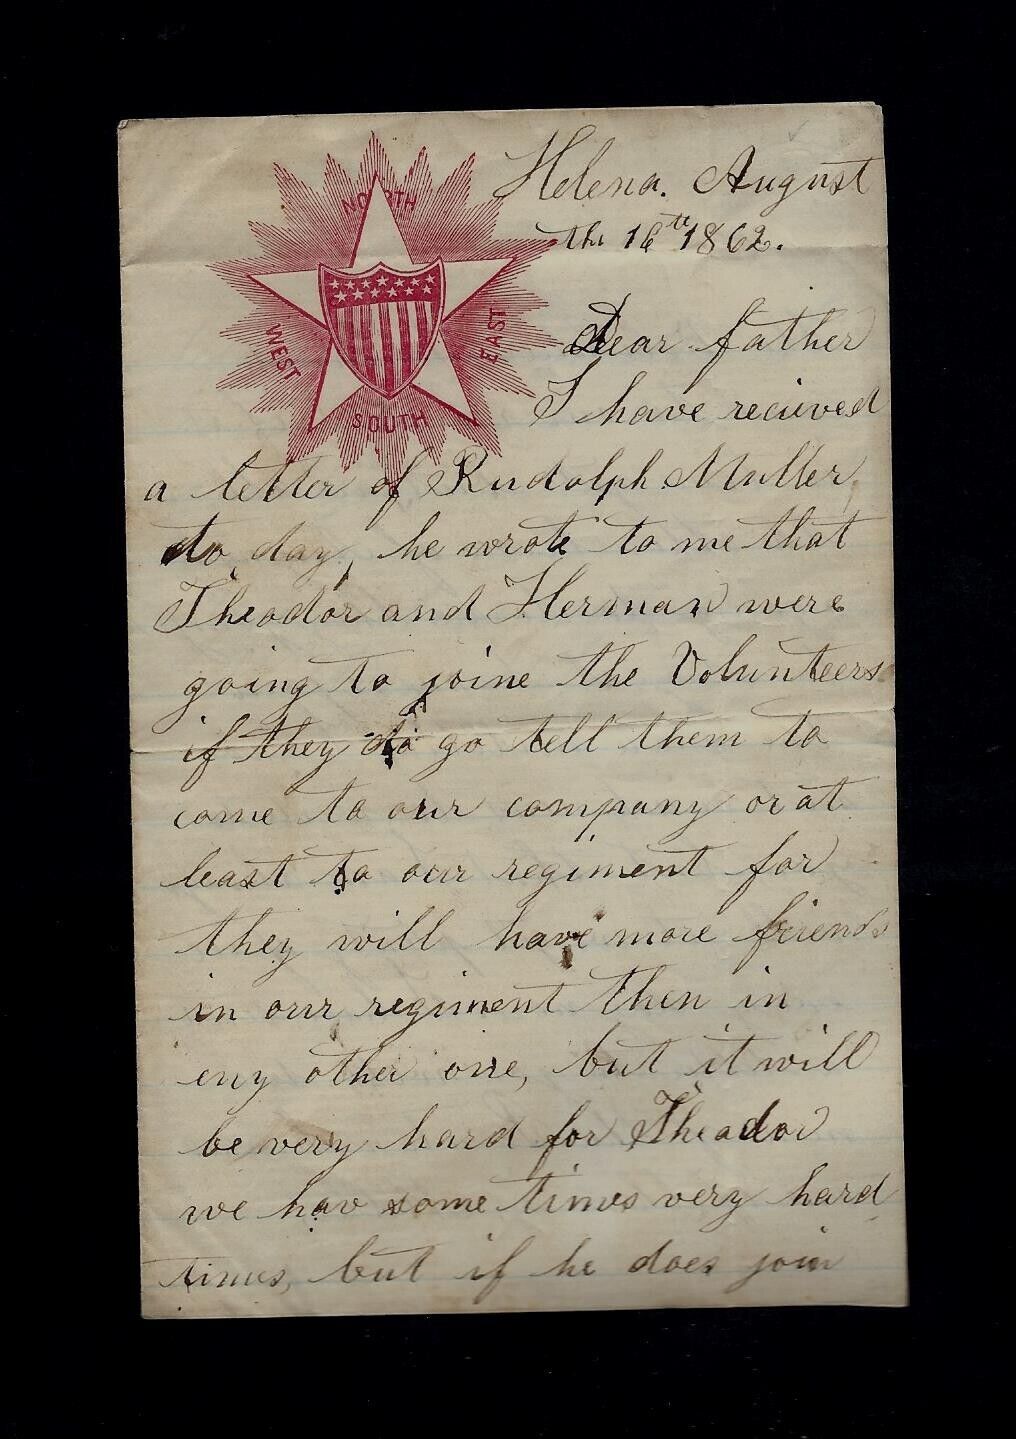 NORTH
WEST
EAST
SOUTH
Helena. August
the 16th 1862.
Dear father
I have recieved
a letter of Rudolph Muller
to day, he wrote to me that
Theodor and Herman were
going to joine the Volunteers
if they do go tell them to
come to our company or at
least to our regiment for
they will have more friends
in our regiment then in
eny other one, but it will
be very hard for Theodor
we hav some times very hard
times, but if he does join